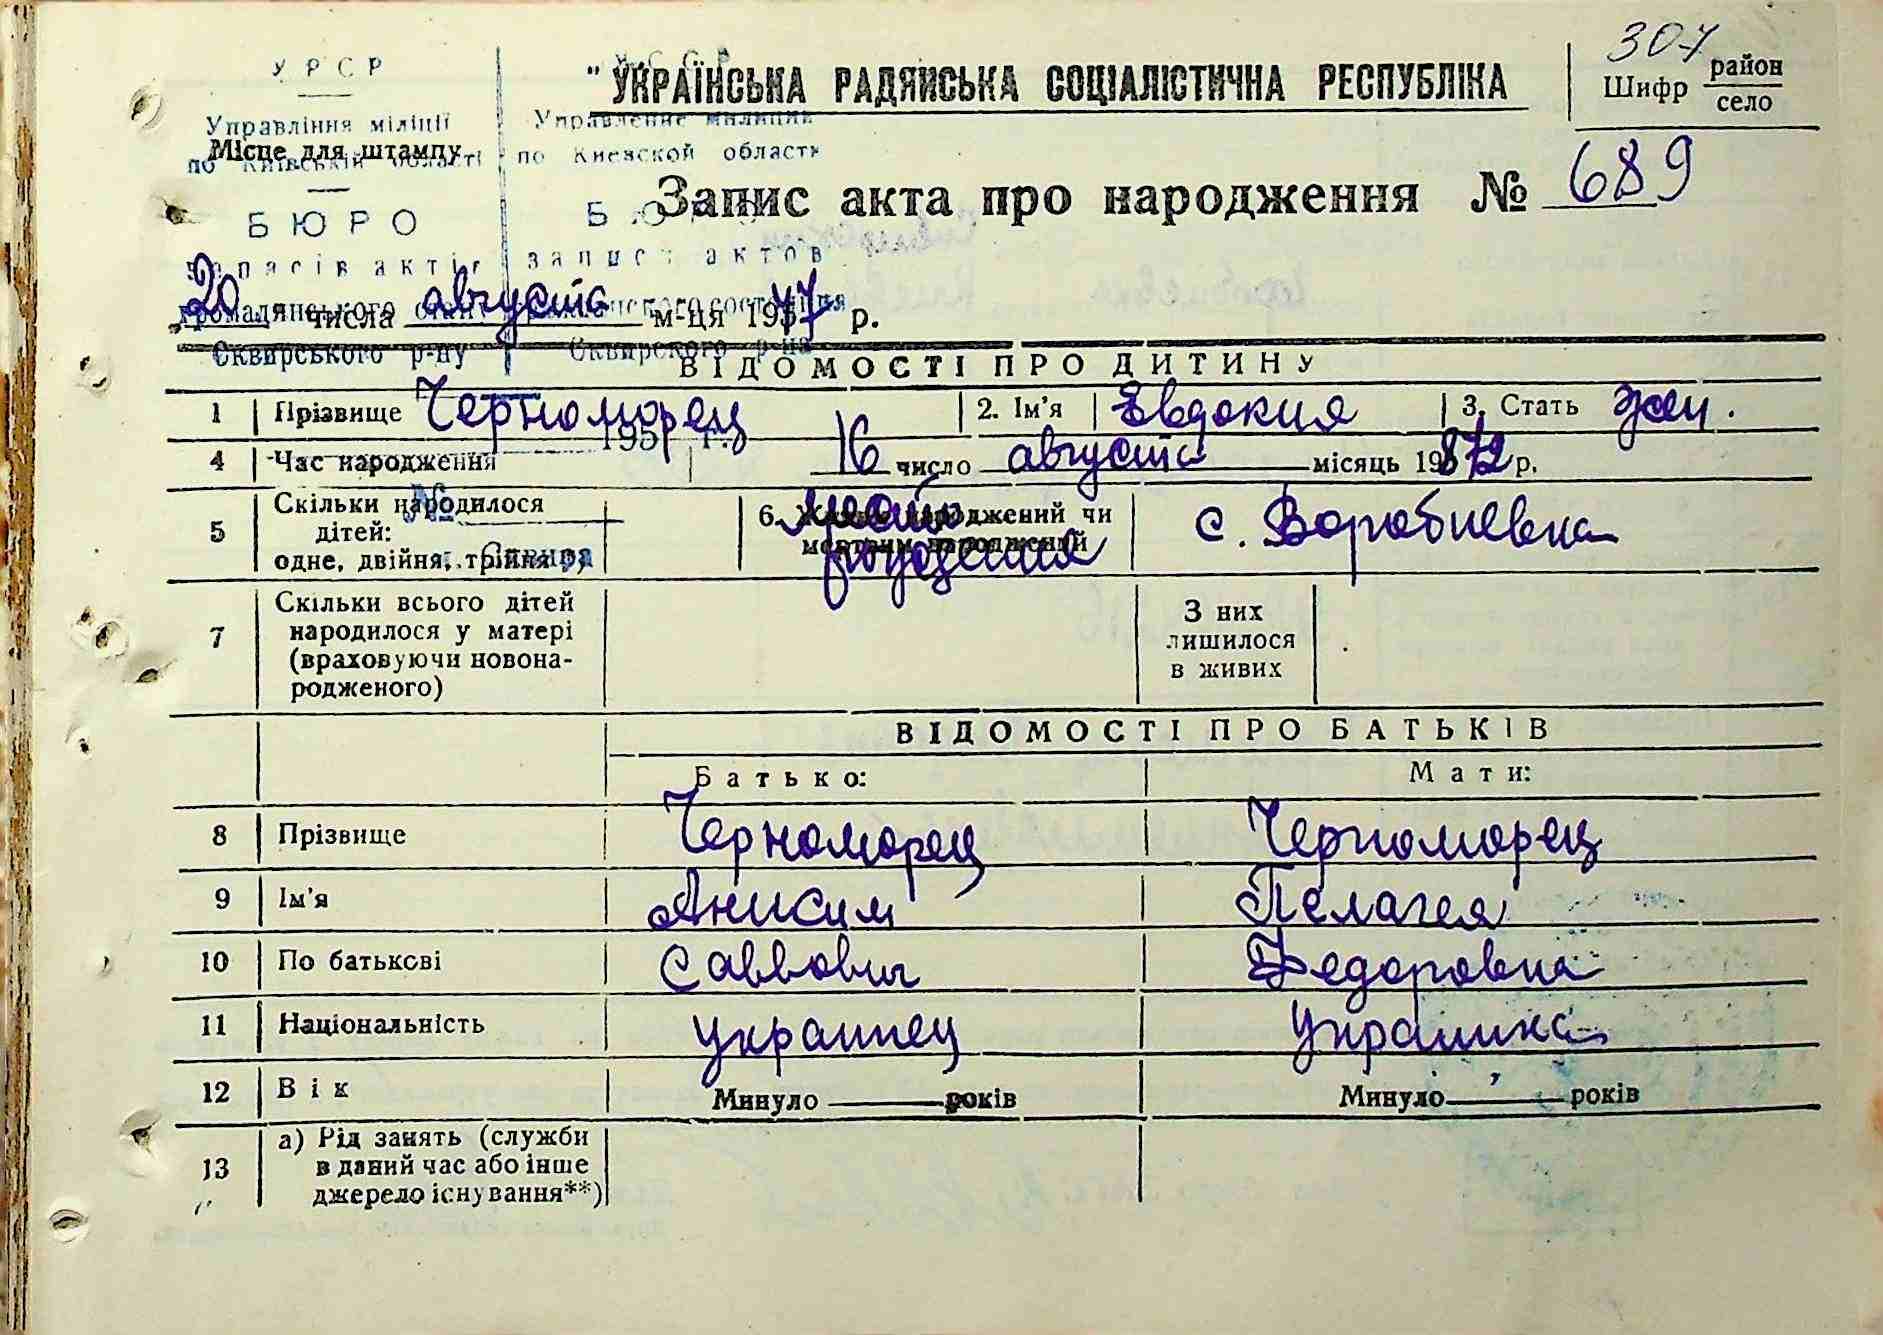 307
УРСР
У.С.С.Р.
" УКРАЇНСЬКА РАДЯНСЬКА СОЦІАЛІСТИЧНА РЕСПУБЛІКА
Шифр район
село
Управління міліції
Управление милиции
Місце для штампу
по Київській області
по Киевской области
Запис акта про народження № 689
БЮРО
БЮРО
записів актів
записи актов
20 числа августа м-ця 1957 р.
громадянського стану
гражданского состояния
Сквирського р-ну
Сквирского р-на
ВІДОМОСТІ ПРО ДИТИНУ
1 Прізвище Черноморец 2. Ім'я Евдокия 3. Стать жен.
195 г.
4 Час народження 16 число августа місяць 19 р.
5 Скільки народилося
дітей:
одне, двійня, трійня
№
г. Сквира
6. Живим народжений чи
мертвим народжений
место
рождения
с. Воробиевка
7 Скільки всього дітей
народилося у матері
(враховуючи новона-
родженого)
З них
лишилося
в живих
ВІДОМОСТІ ПРО БАТЬКІВ
Батько: Мати:
8 Прізвище Черноморец Черноморец
9 Ім'я Анисим Пелагея
10 По батькові Саввович Федоровна
11 Національність украинец украинка
12 Вік Минуло років Минуло років
13 а) Рід занять (служби
в даний час або інше
джерело існування**)